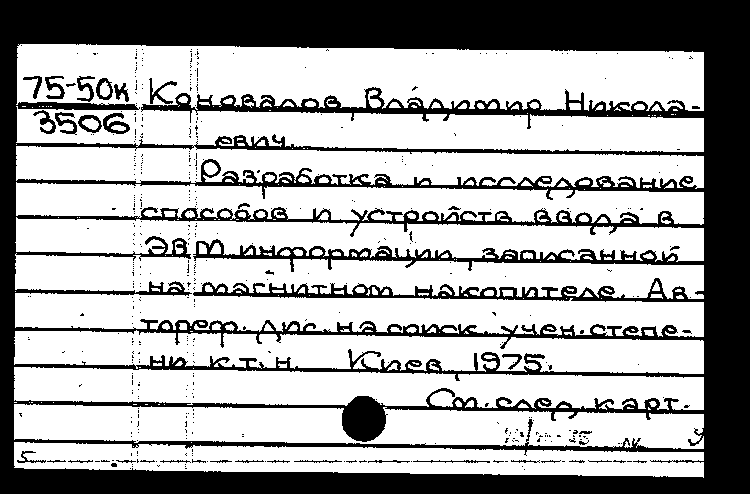 75-50к Коновалов, Владимир Никола-
3506 евич.
Разработка и исследование
способов и устройств ввода в
ЭВМ информации, записанной
на магнитном накопителе. Ав-
тореф. дис. на соиск. учен. степе-
ни к.т.н. Киев, 1975.
См. след. карт.
5